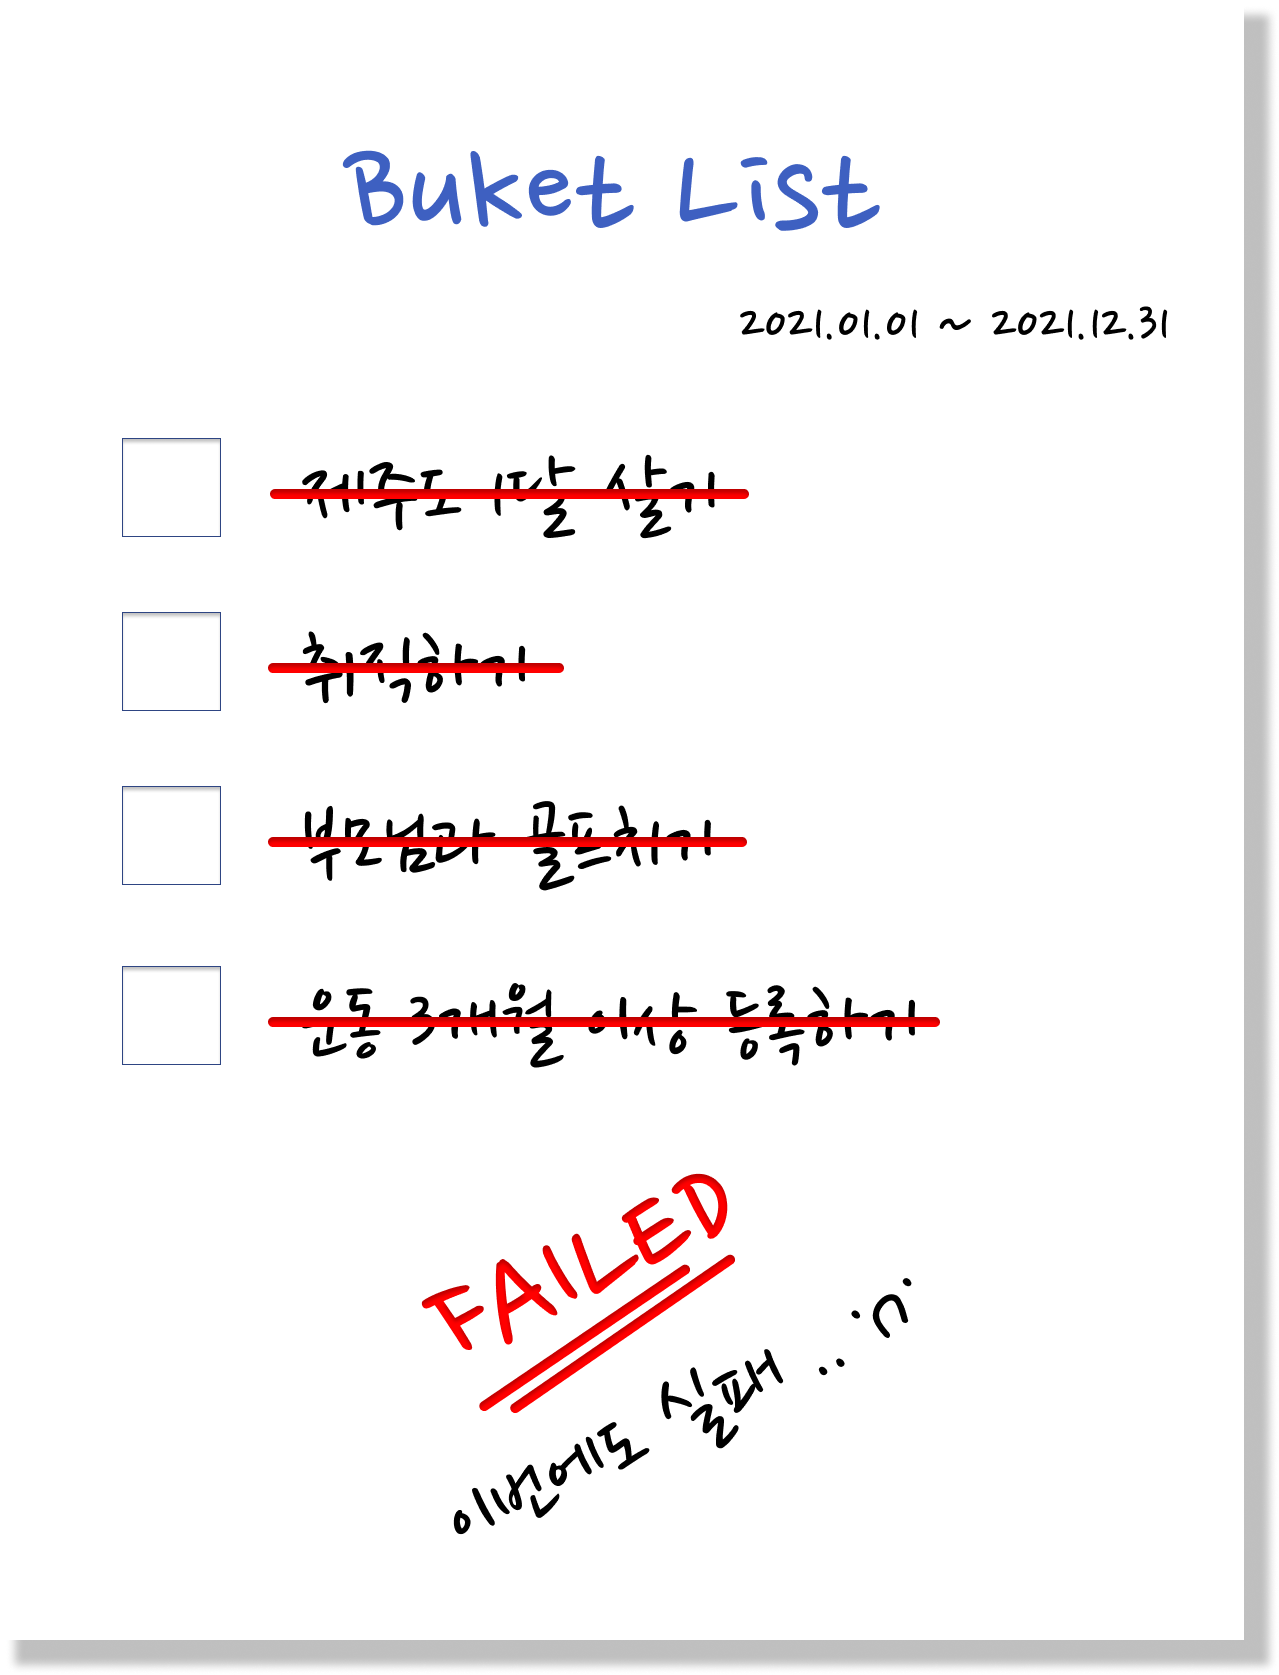 Buket List
2021.01.01 ~ 2021.12.31
제주도 1달 살기
취직하기
부모님과 골프치기
운동 3개월 이상 등록하기
FAILED
이번에도 실패 .. ·n·